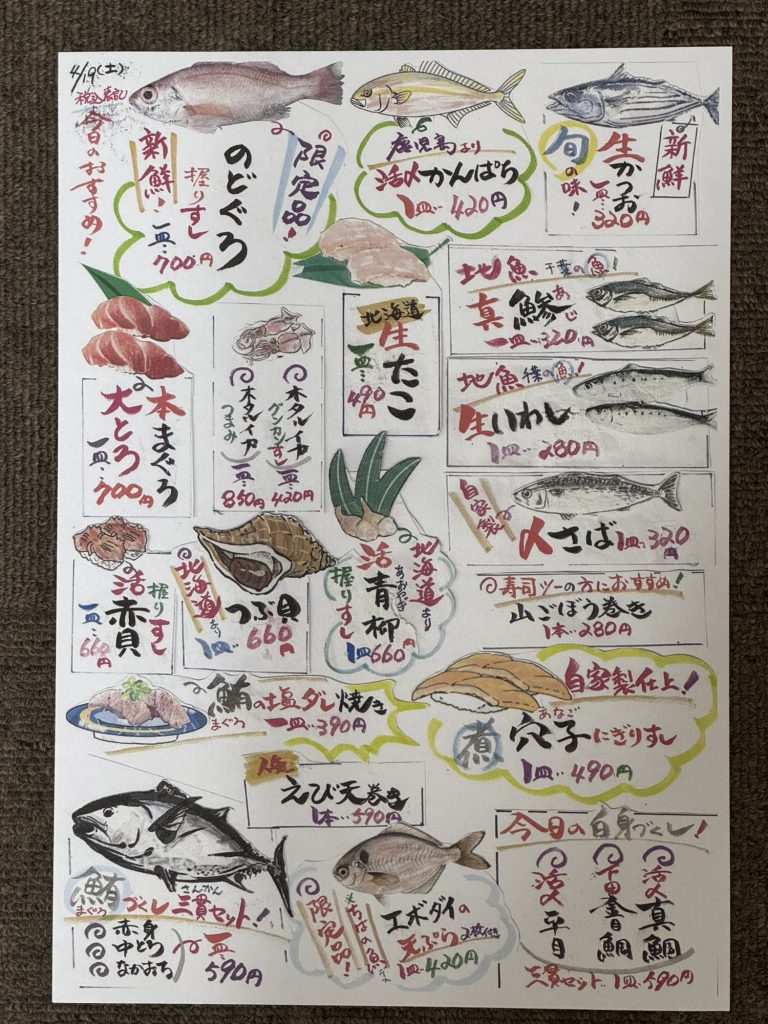 4/19(土)
税込表記
今日のおすすめ!
限定品!
のどぐろ
握りすし
新鮮!
一皿…700円
鹿児島より
活〆かんぱち
1皿…420円
新鮮
生かつお
一皿…320円
旬の味!
地魚 千葉の魚!
真鯵
あじ
一皿…320円
地魚 千葉の魚!
生いわし
1皿…280円
自家製
〆さば 1皿…320円
寿司ツーの方におすすめ!
山ごぼう巻き
1本…280円
本まぐろ
大とろ
一皿…700円
ホタルイカ
グンカンすし
一皿…420円
ホタルイカ
つまみ
一皿…850円
北海道
生たこ
一皿…490円
握りすし
活赤貝
一皿…660円
北海道より
つぶ貝
1皿…660円
北海道より
活青柳
あおやぎ
握りすし
1皿660円
鮪の塩ダレ焼き
まぐろ
一皿…390円
自家製仕上!
あなご
煮穴子にぎりすし
1皿…490円
人気
えび天巻き
1本…590円
鮪づくし三貫セット!
まぐろ
さんかん
赤身
中とろ
なかおち
一皿…590円
限定品!
ちばの魚
エボダイの
天ぷら2枚付き
1皿…420円
今日の白身づくし!
活〆真鯛
下田金目鯛
活〆平目
三貫セット 1皿…590円